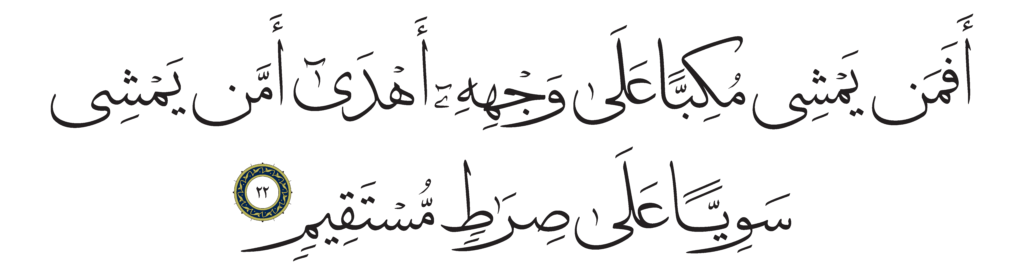 أَفَمَن يَمْشِى مُكِبًّا عَلَىٰ وَجْهِهِۦٓ أَهْدَىٰٓ أَمَّن يَمْشِى
سَوِيًّا عَلَىٰ صِرَٰطٍ مُّسْتَقِيمٍ ٢٢